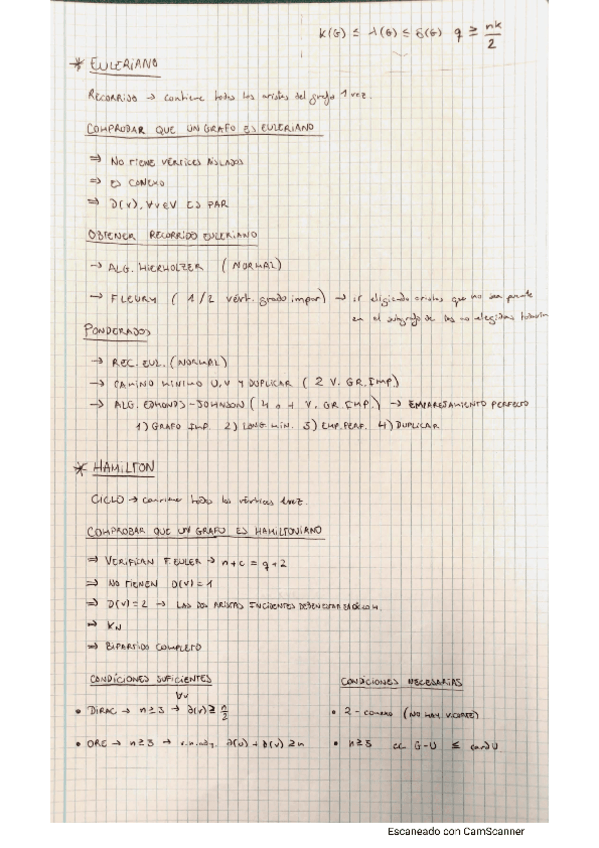 K(G) ≤ λ(G) ≤ δ(G) q ≥ nk/2
* EULERIANO
RECORRIDO → contiene todas las aristas del grafo 1 vez.
COMPROBAR QUE UN GRAFO ES EULERIANO
⇒ NO TIENE VÉRTICES AISLADOS
⇒ ES CONEXO
⇒ ∂(v), ∀v∈V ES PAR
OBTENER RECORRIDO EULERIANO
→ ALG. HIERHOLZER (NORMAL)
→ FLEURY (1/2 vért. grado impar) → ir eligiendo aristas que no sean puente
en el subgrafo de las no elegidas todavía
PONDERADOS
→ REC. EUL. (NORMAL)
→ CAMINO MÍNIMO U,V Y DUPLICAR (2 V. GR. IMP)
→ ALG. EDMONDS-JOHNSON (4 o + V. GR IMP.) → EMPAREJAMIENTO PERFECTO
1) GRAFO IMP. 2) LONG MIN. 3) EMP. PERF. 4) DUPLICAR
* HAMILTON
CICLO → contiene todos los vértices 1 vez.
COMPROBAR QUE UN GRAFO ES HAMILTONIANO
⇒ VERIFICAN F. EULER → n+c = q+2
⇒ NO TIENEN ∂(v)=1
⇒ ∂(v)=2 → LAS DOS ARISTAS INCIDENTES DEBEN ESTAR EN CICLO H.
⇒ KN
⇒ BIPARTIDO COMPLETO
CONDICIONES SUFICIENTES
∀v
• DIRAC → n≥3 → ∂(v) ≥ n/2
• ORE → n≥3 → ∂(u) + ∂(v) ≥ n
CONDICIONES NECESARIAS
• 2-conexo (NO HAY V. CORTE)
• n≥3 cc G-U ≤ card U
Escaneado con CamScanner